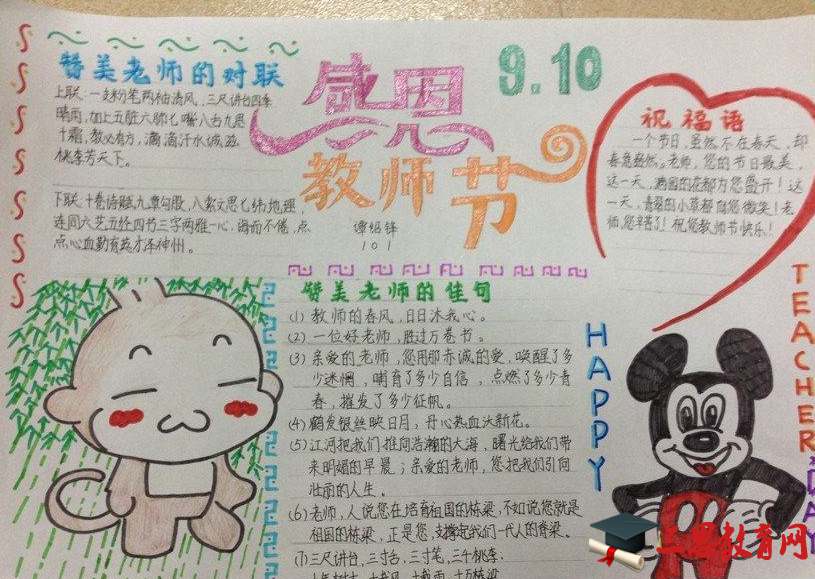 赞美老师的对联
上联:一支粉笔两袖清风,三尺讲台四季
晴雨,加上五脏六腑七嘴八舌九思
十霜,教必有方,滴滴汗水诚滋
桃李芳天下。
下联:十卷诗赋九章勾股,八索文思七纬地理,
连同六艺五经四书三字两雅一心,诲而不倦,点
点心血勤育英才泽神州。
感恩
教师节
101
9.10
祝福语
一个节日,虽然不在春天,却
春意盎然。老师,您的节日最美,
这一天,满园的花都为您盛开!这
一天,青翠的小草都向您微笑!老
师,您辛苦了!祝您教师节快乐!
赞美老师的佳句
(1)教师的春风,日日沐我心。
(2)一位好老师,胜过万卷书。
(3)亲爱的老师,您用那赤诚的爱,唤醒了多
少迷惘,哺育了多少自信,点燃了多少青
春,摧发了多少征帆。
(4)鹤发银丝映日月,丹心热血沃新花。
(5)江河把我们推向浩瀚的大海,曙光给我们带
来明媚的早晨;亲爱的老师,您把我们引向
壮丽的人生。
(6)老师,人说您在培育祖国的栋梁,不如说您就是
祖国的栋梁,正是您,支撑起我们一代人的脊梁。
(7)三尺讲台,三寸舌,三寸笔,三千桃李;
HAPPY
TEACHER
DAY
教育网